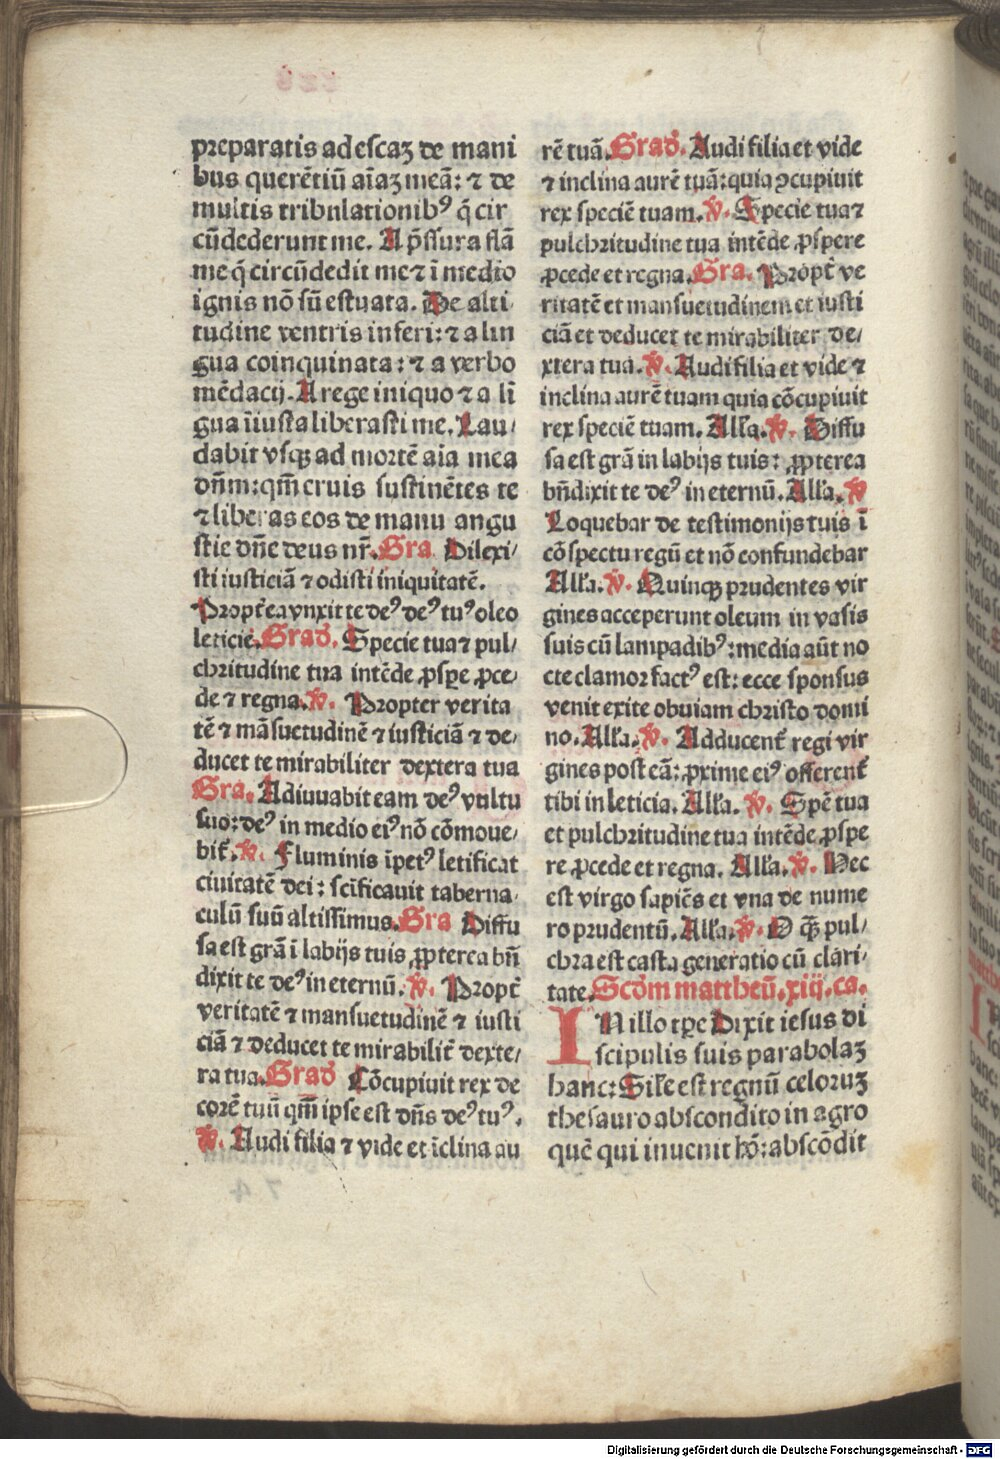 preparatis ad escaꝫ de mani
bus querētiū aīaꝫ meā: ⁊ de
multis tribnlationibꝰ q̄ cir
cūdederunt me. A p̄ssura flā
me q̄ circūdedit me ⁊ ī medio
ignis nō sū estuata. De alti
tudine ventris inferi: ⁊ a lin
gua coinquinata: ⁊ a verbo
mēdacij. A rege iniquo ⁊ a lī
gua īiusta liberasti me. Lau/
dabit vsqꝫ ad mortē aīa mea
dn̄m: qm̄ eruis sustinētes te
⁊ liberas eos de manu angu
stie dn̄e deus nr̄. Gra Dilexi/
sti iusticiā ⁊ odisti iniquitatē.
Propt̄ea vnxit te deꝰ deꝰ tuꝰ oleo
leticie. Grad̄. Specie tua ⁊ pul/
chritudine tua intēde ꝓspe ꝓce/
de ⁊ regna. ℣. Propter verita
tē ⁊ māsuetudinē ⁊ iusticiā ⁊ de/
ducet te mirabiliter dextera tua
Gra. Adiuuabit eam deꝰ vultu
suo: deꝰ in medio eiꝰ nō cōmoue/
bit̄. ℣. Fluminis īpetꝰ letificat
ciuitatē dei: scīficauit taberna/
culū suū altissimus. Gra Diffu
sa est grā ī labijs tuis, ꝓpterea bn̄
dixit te deꝰ in eternū. ℣. Propt̄
veritatē ⁊ mansuetudinē ⁊ iusti
ciā ⁊ deducet te mirabilit̄ dexte/
ra tua. Grad̄ Cōcupiuit rex de
corē tuū qm̄ ipse est dn̄s deꝰ tuꝰ.
℣. Audi filia ⁊ vide et īclina au
rē tuā. Grad̄. Audi filia et vide
⁊ inclina aurē tuā: quia ꝯcupiuit
rex speciē tuam. ℣. Specie tua ⁊
pulchritudine tua intēde ꝓspere
ꝓcede et regna. Gra. Propt̄ ve
ritatē et mansuetudinem et iusti
ciā et deducet te mirabiliter de/
xtera tua. ℣. Audi filia et vide ⁊
inclina aurē tuam quia cōcupiuit
rex speciē tuam. Allꝭa. ℣. Diffu
sa est grā in labijs tuis: ꝓpterea
bn̄dixit te deꝰ in eternū. Allꝭa. ℣
Loquebar de testimonijs tuis ī
cōspectu regū et nō confundebar
Allꝭa. ℣. Quinqꝫ prudentes vir
gines acceperunt oleum in vasis
suis cū lampadibꝰ: media aūt no
cte clamor factꝰ est: ecce sponsus
venit exite obuiam christo domi
no. Allꝭa. ℣. Adducent̄ regi vir
gines post eā: ꝓxime eiꝰ offerent̄
tibi in leticia. Allꝭa. ℣. Spē tua
et pulchritudine tua intēde ꝓspe
re ꝓcede et regna. Allꝭa. ℣. Hec
est virgo sapiēs et vna de nume
ro prudentū. Allꝭa. ℣. O q̄ꝫ pul/
chra est casta generatio cū clari/
tate. Scd̄m mattheū. xiij. ca.
IN illo tꝑe Dixit iesus di
scipulis suis parabolaꝫ
hanc: Silꝭe est regnū celoruꝫ
thesauro abscondito in agro
quē qui inuenit hō: abscōdit
Digitalisierung gefördert durch die Deutsche Forschungsgemeinschaft - DFG